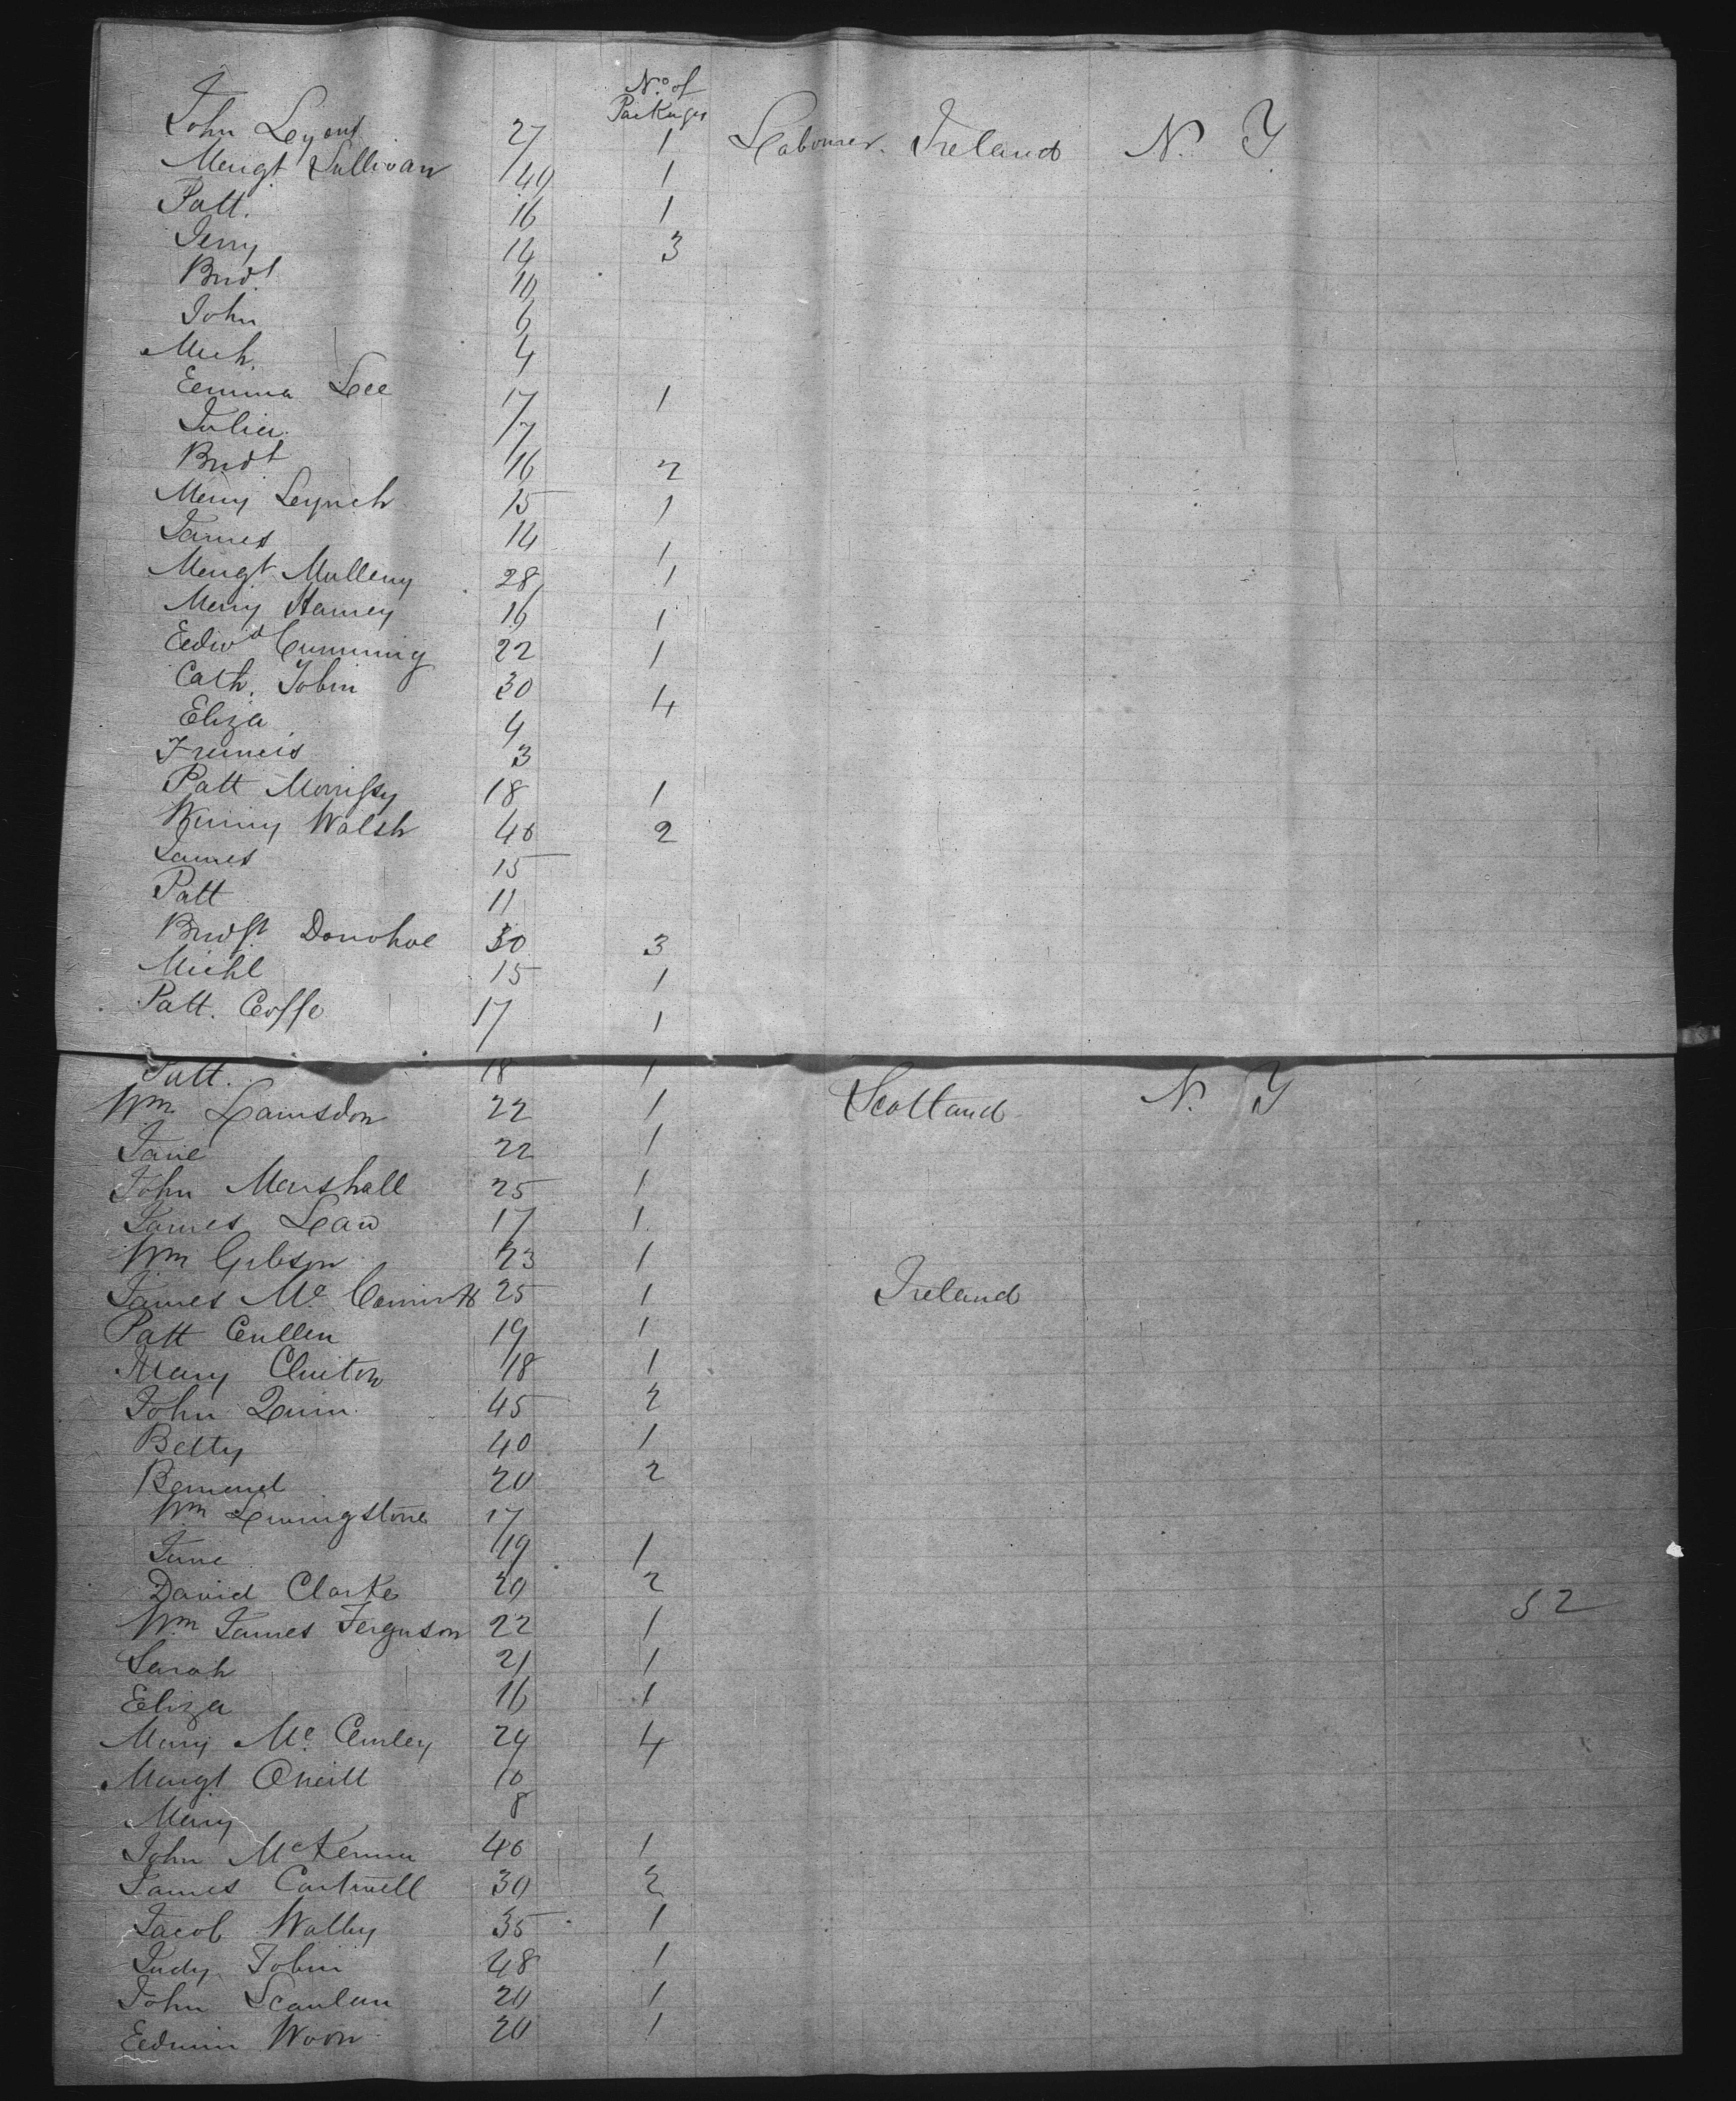 No of
Packages
John Leyons 27 1 Labourer. Ireland N. Y
Margt Sullivan 40 1
Patt. 16 1
Jerry 14 3
Bridt 10
John 6
Mich. 4
Emma Lee 17 1
Julia 7
Bridt 16 2
Mary Leynch 15 1
James 14 1
Margt Mullany 28 1
Mary Harney 16 1
Edwd Cumming 22 1
Cath. Tobin 30 4
Eliza 4
Francis 3
Patt Morrissy 18 1
Winny Walsh 40 2
James 15
Patt 11
Bridgt Donohoe 30 3
Michl 15 1
Patt. Coffe 17 1
Patt. 18 1
Wm Lamsdon 22 1 Scotland N. Y
Jane 22 1
John Marshall 25 1
James Law 17 1
Wm Gibson 23 1
James Mc 25 1 Ireland
Patt Cullen 19 1
Mary Clinton 18 1
John Quin 45 2
Betty 40 1
Bernard 20 2
Wm Livingstone 17
Jane 19 1
David Clarke 20 2
Wm James Ferguson 22 1
52
Sarah 21 1
Eliza 16 1
Mary Mc Curley 24 4
Margt Oneill 10
Mary 8
John McKenna 40 1
James Cantwell 30 2
Jacob Walby 35 1
Judy Tobin 48 1
John Scanlan 20 1
Edwin Woon 20 1